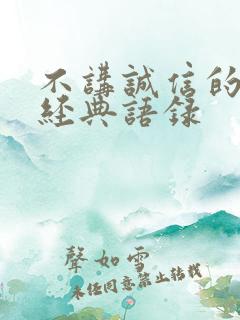 不講誠信的
經典語録
聲如雪
未经同意禁止转载